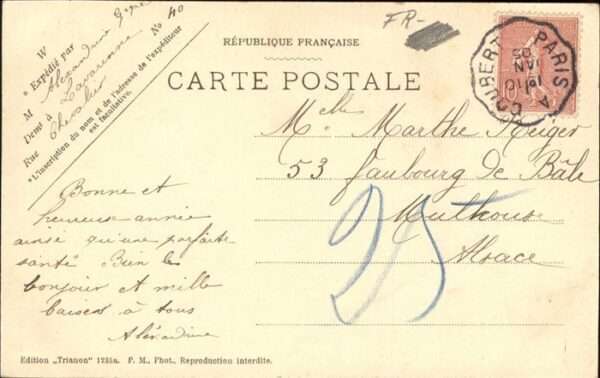 FR-
RÉPUBLIQUE FRANÇAISE
CARTE POSTALE
* Expédié par
M Alexandrine
Demt à Lavarenne
Rue Chevalier No 40
*L'inscription du nom et de l'adresse de l'expéditeur
est facultative.
PARIS A
JAN
05
Melle Marthe
53 Faubourg de Bâle
Mulhouse
Alsace
25
Bonne et
heureuse année
ainsi qu'une parfaite
santé Bien le
bonjour et mille
baisers à tous
Alexandrine
Edition „Trianon" 1735a. F. M., Phot., Reproduction interdite.